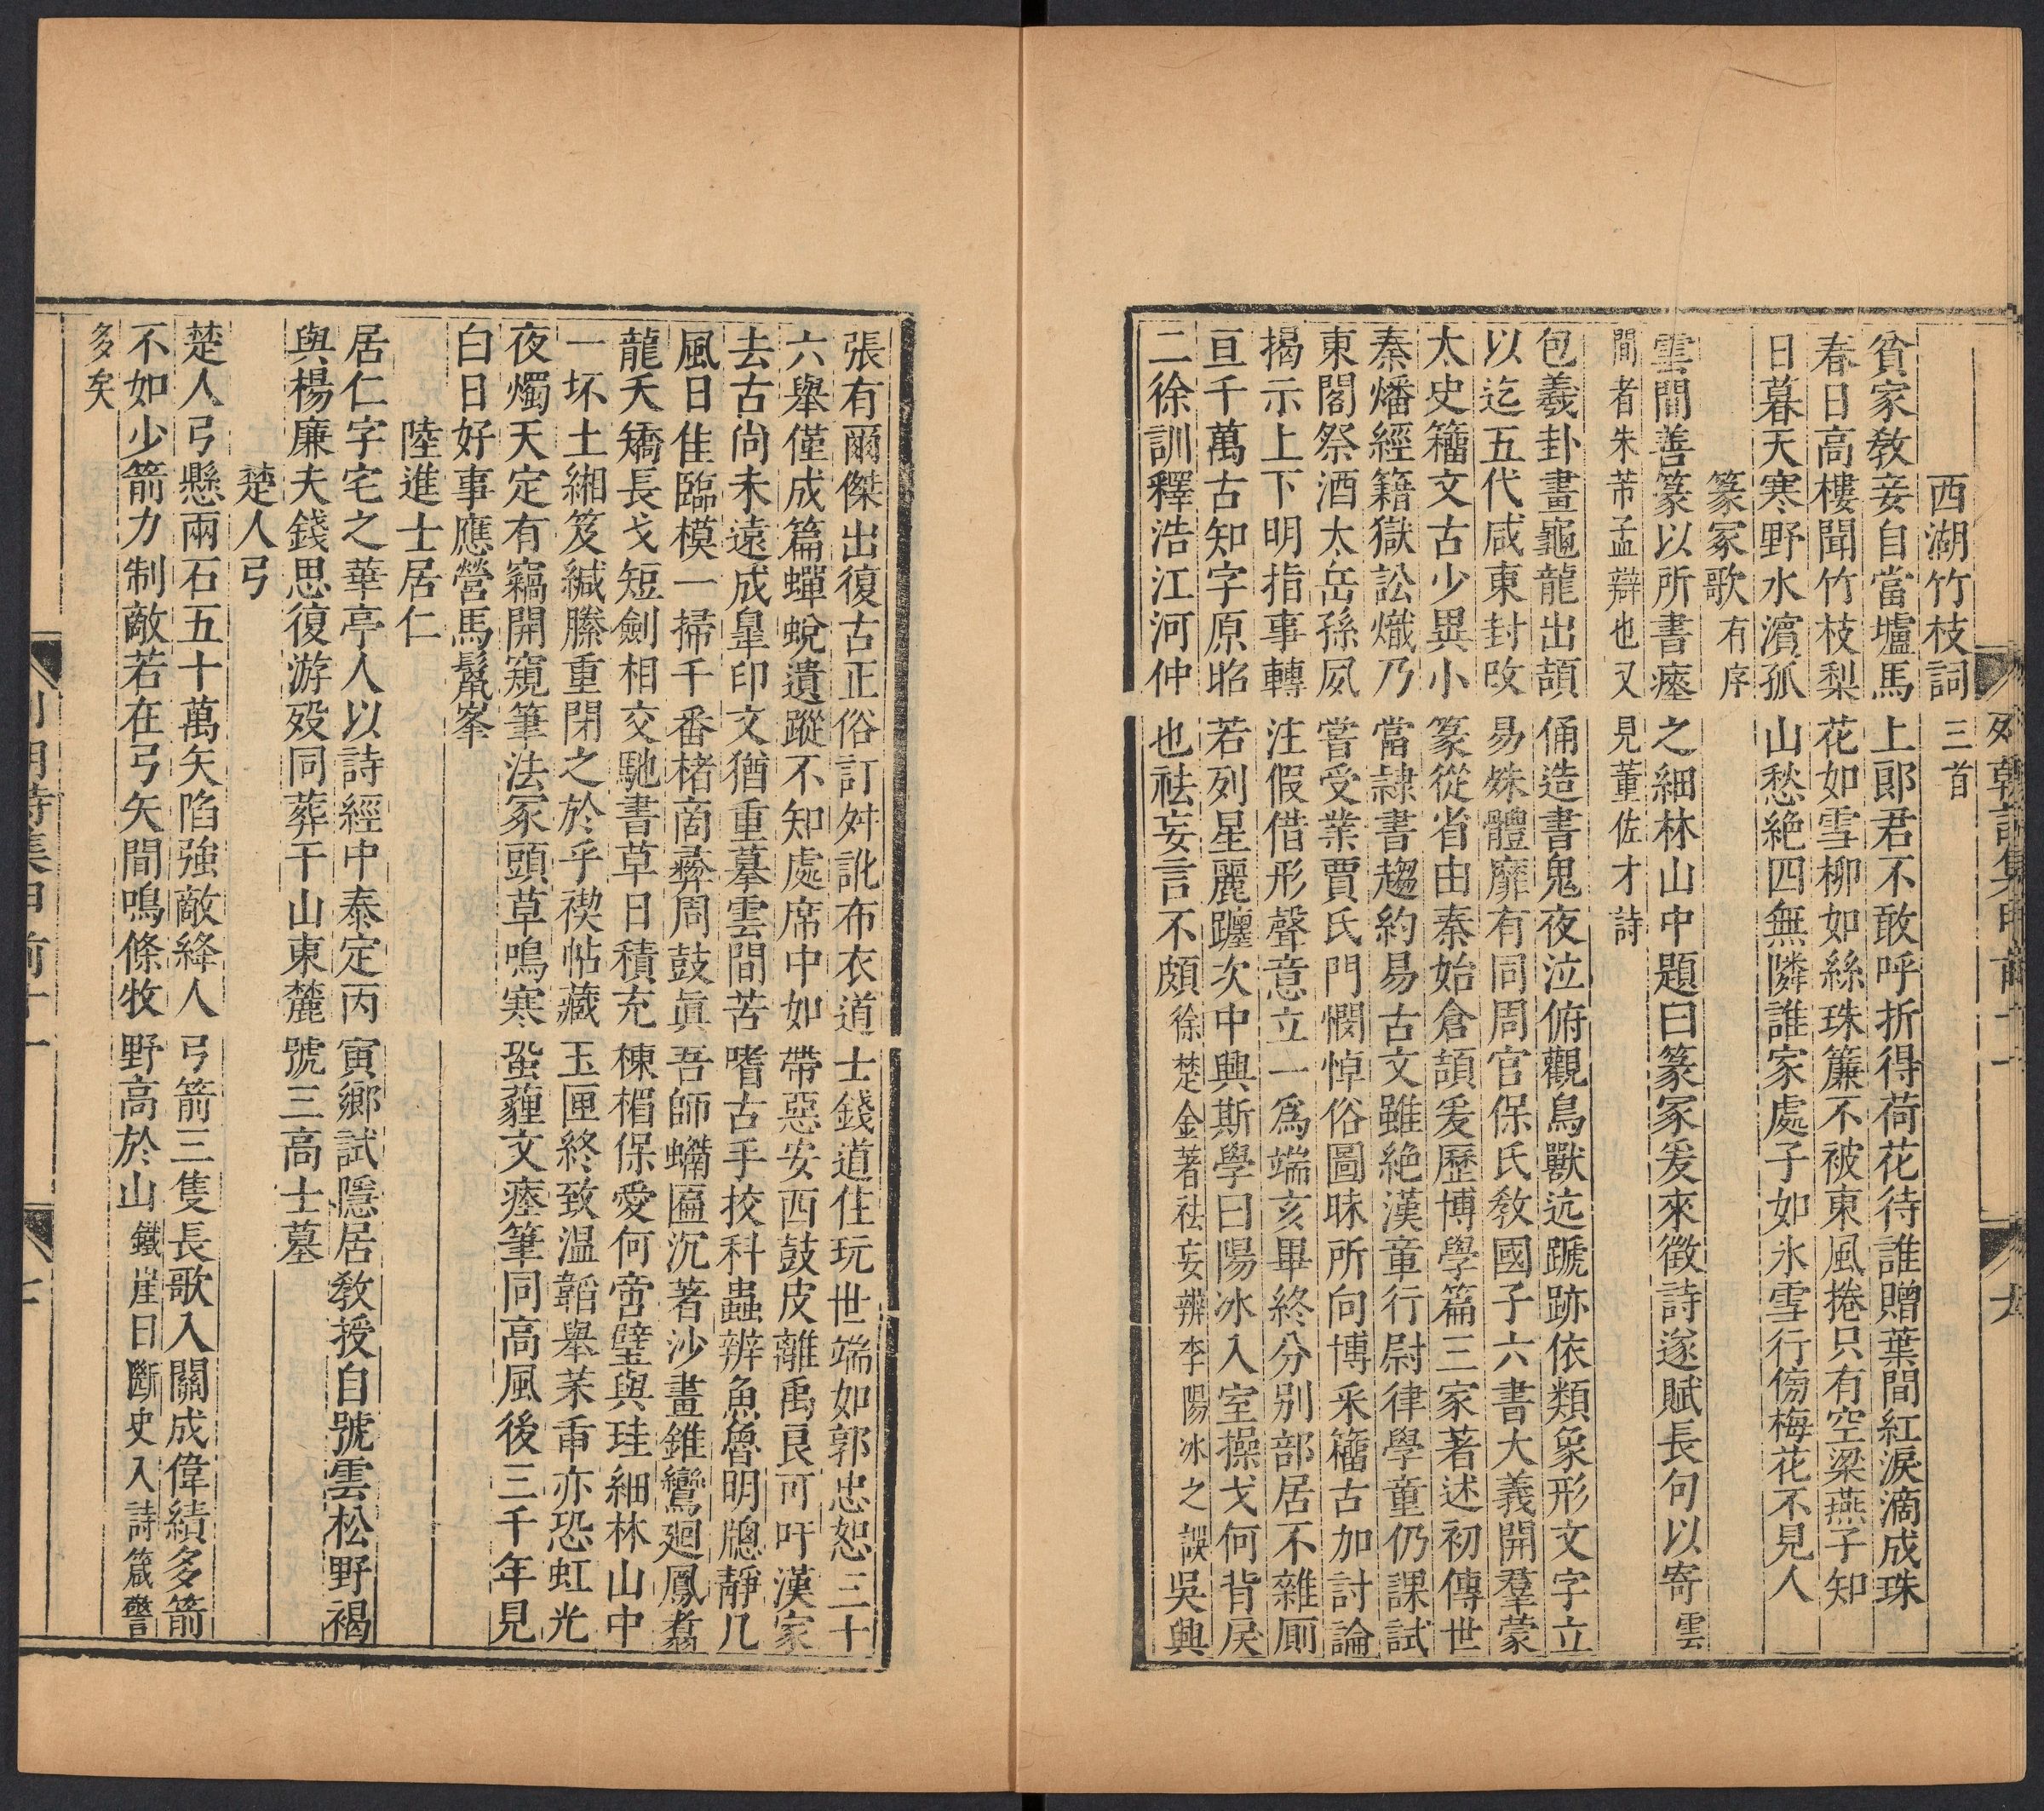 西湖竹枝詞三首
貧家教妾自當壚馬上郎君不敢呼折得荷花待誰贈葉間紅淚滴成珠
春日高樓聞竹枝梨花如雪柳如絲珠簾不被東風捲只有空梁燕子知
日暮天寒野水濱孤山愁絶四無隣誰家處子如氷雪行傍梅花不見人
篆冢歌有序
雲間善篆以所書瘞之細林山中題曰篆冢爰來徵詩遂賦長句以寄雲
間者朱芾孟辯也又見董佐才詩
包羲卦畫龜龍出頡俑造書鬼夜泣俯觀鳥獸迒蹏跡依類象形文字立
以迄五代咸東封攺易殊體靡有同周官保氏敎國子六書大義開羣蒙
太史籀文古少異小篆從省由秦始倉頡爰歷博學篇三家著述初傳世
秦燔經籍獄訟熾乃當隷書趨約易古文雖絶漢童行尉律學童仍課試
東閣祭酒太岳孫夙嘗受業賈氏門憫悼俗圖昧所向博采籀古加討論
揭示上下明指事轉注假借形聲意立一爲端亥畢終分别部居不雜厠
亘千萬古知字原昭若列星麗躔次中興斯學曰陽冰入室操戈何背戾
二徐訓釋浩江河仲也祛妄言不頗徐楚金著祛妄辨李陽冰之誤吳興
列朝詩集甲前十一
張有爾傑出復古正俗訂舛訛布衣道士錢道住玩世端如郭忠恕三十
六舉僅成篇蟬蛻遺蹤不知處席中如帶惡安西鼓皮離禹良可吁漢家
去古尚未遠成臯印文猶重摹雲間苦嗜古手挍科蟲辨魚魯明牕靜几
風日佳臨模一掃千番楮商彞周鼓眞吾師蠨匾沉著沙畫錐鸞廻鳳翥
龍夭矯長戈短劍相交馳書草日積充棟楣保愛何啻璧與珪細林山中
一坏土緗笈緘縢重閉之於乎禊帖藏玉匣終致温韜舉茉臿亦恐虹光
夜燭天定有竊開窺筆法冢頭草鳴寒蛩薶文瘞筆同高風後三千年見
白日好事應營馬鬣峯
陸進士居仁
居仁字宅之華亭人以詩經中泰定丙寅鄉試隱居敎授自號雲松野褐
與楊廉夫錢思復游殁同葬干山東麓號三高士墓
楚人弓
楚人弓懸兩石五十萬矢陷強敵絳人弓箭三隻長歌入關成偉績多箭
不如少箭力制敵若在弓矢間鳴條牧野高於山鐵崖日斷史入詩箴警
多矣